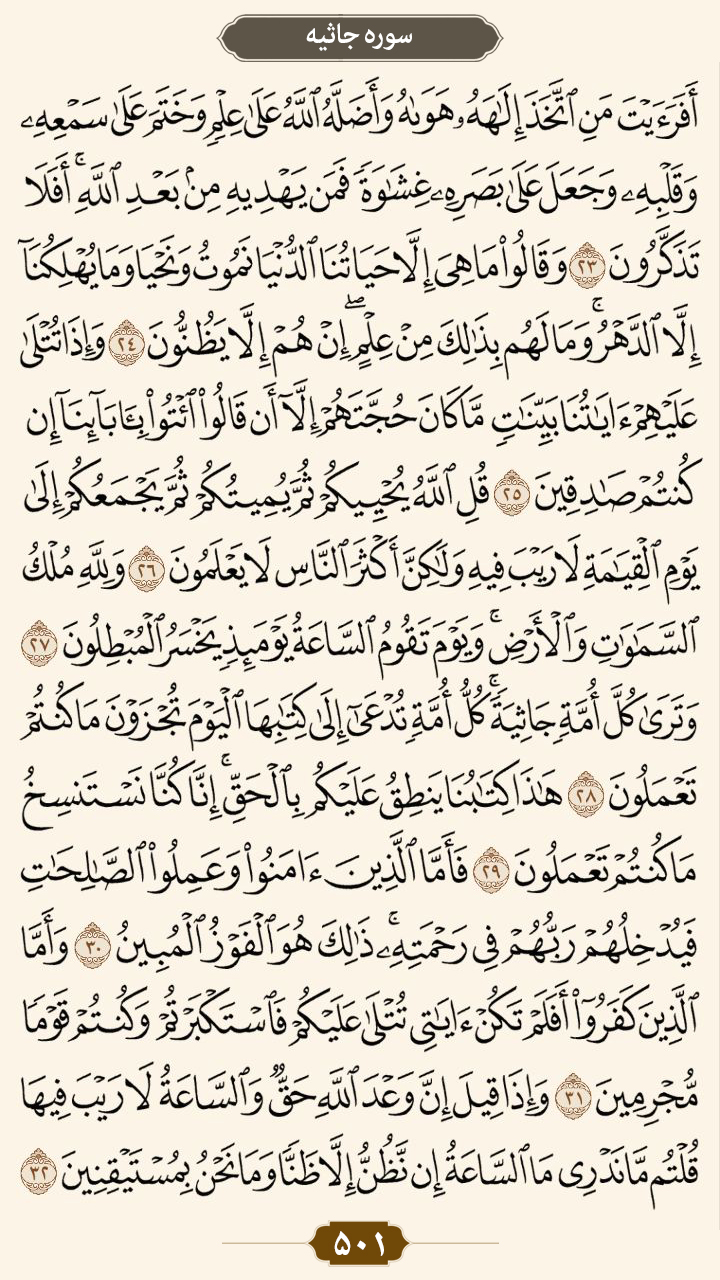 سوره جاثیه
أَفَرَءَيْتَ مَنِ ٱتَّخَذَ إِلَٰهَهُۥ هَوَىٰهُ وَأَضَلَّهُ ٱللَّهُ عَلَىٰ عِلْمٍ وَخَتَمَ عَلَىٰ سَمْعِهِۦ
وَقَلْبِهِۦ وَجَعَلَ عَلَىٰ بَصَرِهِۦ غِشَٰوَةً فَمَن يَهْدِيهِ مِنۢ بَعْدِ ٱللَّهِ ۚ أَفَلَا
تَذَكَّرُونَ ٢٣ وَقَالُوا۟ مَا هِىَ إِلَّا حَيَاتُنَا ٱلدُّنْيَا نَمُوتُ وَنَحْيَا وَمَا يُهْلِكُنَآ
إِلَّا ٱلدَّهْرُ ۚ وَمَا لَهُم بِذَٰلِكَ مِنْ عِلْمٍ ۖ إِنْ هُمْ إِلَّا يَظُنُّونَ ٢٤ وَإِذَا تُتْلَىٰ
عَلَيْهِمْ ءَايَٰتُنَا بَيِّنَٰتٍ مَّا كَانَ حُجَّتَهُمْ إِلَّآ أَن قَالُوا۟ ٱئْتُوا۟ بِـَٔابَآئِنَآ إِن
كُنتُمْ صَٰدِقِينَ ٢٥ قُلِ ٱللَّهُ يُحْيِيكُمْ ثُمَّ يُمِيتُكُمْ ثُمَّ يَجْمَعُكُمْ إِلَىٰ
يَوْمِ ٱلْقِيَٰمَةِ لَا رَيْبَ فِيهِ وَلَٰكِنَّ أَكْثَرَ ٱلنَّاسِ لَا يَعْلَمُونَ ٢٦ وَلِلَّهِ مُلْكُ
ٱلسَّمَٰوَٰتِ وَٱلْأَرْضِ ۚ وَيَوْمَ تَقُومُ ٱلسَّاعَةُ يَوْمَئِذٍ يَخْسَرُ ٱلْمُبْطِلُونَ ٢٧
وَتَرَىٰ كُلَّ أُمَّةٍ جَاثِيَةً ۚ كُلُّ أُمَّةٍ تُدْعَىٰٓ إِلَىٰ كِتَٰبِهَا ٱلْيَوْمَ تُجْزَوْنَ مَا كُنتُمْ
تَعْمَلُونَ ٢٨ هَٰذَا كِتَٰبُنَا يَنطِقُ عَلَيْكُم بِٱلْحَقِّ ۚ إِنَّا كُنَّا نَسْتَنسِخُ
مَا كُنتُمْ تَعْمَلُونَ ٢٩ فَأَمَّا ٱلَّذِينَ ءَامَنُوا۟ وَعَمِلُوا۟ ٱلصَّٰلِحَٰتِ
فَيُدْخِلُهُمْ رَبُّهُمْ فِى رَحْمَتِهِۦ ۚ ذَٰلِكَ هُوَ ٱلْفَوْزُ ٱلْمُبِينُ ٣٠ وَأَمَّا
ٱلَّذِينَ كَفَرُوٓا۟ أَفَلَمْ تَكُنْ ءَايَٰتِى تُتْلَىٰ عَلَيْكُمْ فَٱسْتَكْبَرْتُمْ وَكُنتُمْ قَوْمًا
مُّجْرِمِينَ ٣١ وَإِذَا قِيلَ إِنَّ وَعْدَ ٱللَّهِ حَقٌّ وَٱلسَّاعَةُ لَا رَيْبَ فِيهَا
قُلْتُم مَّا نَدْرِى مَا ٱلسَّاعَةُ إِن نَّظُنُّ إِلَّا ظَنًّا وَمَا نَحْنُ بِمُسْتَيْقِنِينَ ٣٢
۵۰۱